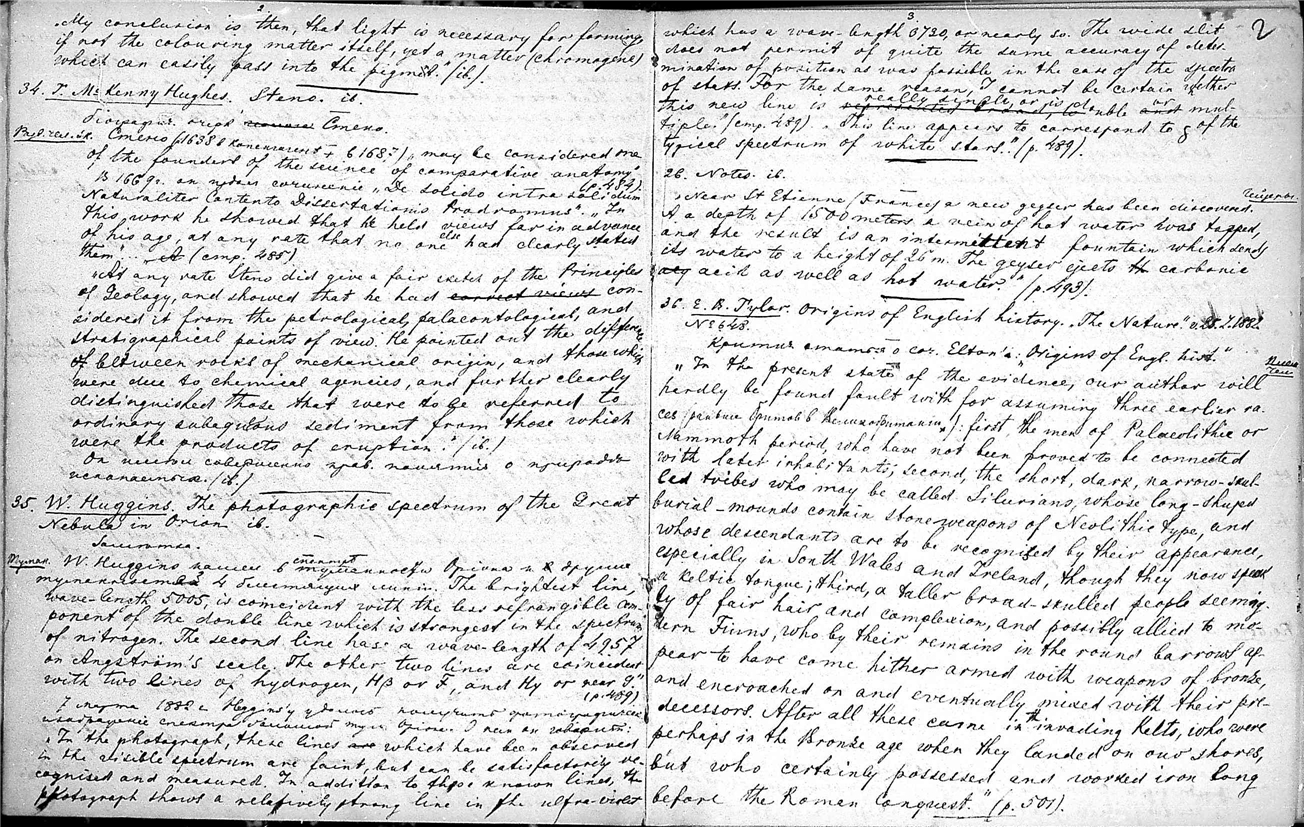 2
„My conclusion is then, that light is necessary for forming,
if not the colouring matter itself, yet a matter (chromogene)
which can easily pass into the pigmet." (ib.).
34. T. McKenny Hughes. Steno. ib.
Стено.
Стено (1638 в Копенгагене + в 1687) „may be considered one
of the founders of the science of comparative anatomy"
(p. 484).
В 1669 г. он сочинение „De solido intra solidum
Naturaliter Contento Dissertationis Prodromus". „In
this work he showed that he held views far in advance
of his age, at any rate that no one else had clearly stated
them... (стр. 485)
„At any rate Steno did give a fair sketch of the Principles
of Geology, and showed that he had correct views con-
sidered it from the petrological, palaeontological, and
stratigraphical points of view. He pointed out the difference
between rocks of mechanical origin, and those which
were due to chemical agencies, and further clearly
distinguished those that were to be referred to
ordinary subaqueous sediment from those which
were the products of eruption." (ib.)
Он совершенно прав. о природе
(ib.)
35. W. Huggins. The photographic spectrum of the Great
Nebula in Orion ib.
Заметка.
Туман. W. Huggins нашел в спектре Ориона и других
4 блестящие линии. The brightest line,
wave-length 5005, is coincident with the less refrangible com-
ponent of the double line which is strongest in the spectrum
of nitrogen. The second line has a wave-length of 4957
on Angström's scale. The other two lines are coincident
with two lines of hydrogen, Hβ or F, and Hγ or near G"
(p. 489)
7 марта 1882 г. Heggins'у удалось получить фотографическое
спектра Ориона.
„In the photograph, these lines which have been observed
in the visible spectrum are faint, but can be satisfactorily re-
cognised and measured. In addition to these known lines, the
photograph shows a relatively strong line in the ultra-violet
3
2
which has a wave-length 3730, or nearly so. The wide slit
does not permit of quite the same accuracy of deter-
mination of position as was possible in the case of the spectra
of stars. For the same reason, I cannot be certain whether
this new line is really single, or is double or mul-
tiple." (стр. 489). „This line appears to correspond to ζ of the
typical spectrum of white stars." (p. 489).
26. Notes. ib.
„Near St Etienne (France) a new geyser has been discovered.
At a depth of 1500 meters a vein of hot water was tapped,
and the result is an intermettent fountain which sends
its water to a height of 26 m. The geyser ejects carbonic
acid as well as hot water." (p. 493).
36. E. B. Tylor. Origins of English history. „The Nature."
№ 648.
Критич. статья о соч. Elton'a: „Origins of Engl. hist."
„In the present state of the evidence, our author will
hardly be found fault with for assuming three earlier ra-
ces: first, the men of Palaeolithic or
Mammoth period, who have not been proved to be connected
with later inhabitants; second, the short, dark, narrow-skul-
led tribes who may be called Silurians, whose long-shaped
burial-mounds contain stone weapons of Neolithic type, and
whose descendants are to be recognized by their appearance,
especially in South Wales and Ireland, though they now speak
a Keltic tongue; third, a taller broad-skulled people seeming-
ly of fair hair and complexion, and possibly allied to mo-
dern Finns, who by their remains in the round barrows ap-
pear to have come hither armed with weapons of bronze,
and encroached on and eventually mixed with their pre-
decessors. After all these came in the invading Kelts, who were
perhaps in the Bronze age when they landed on our shores,
but who certainly possessed and worked iron long
before the Roman Conquest." (p. 501).